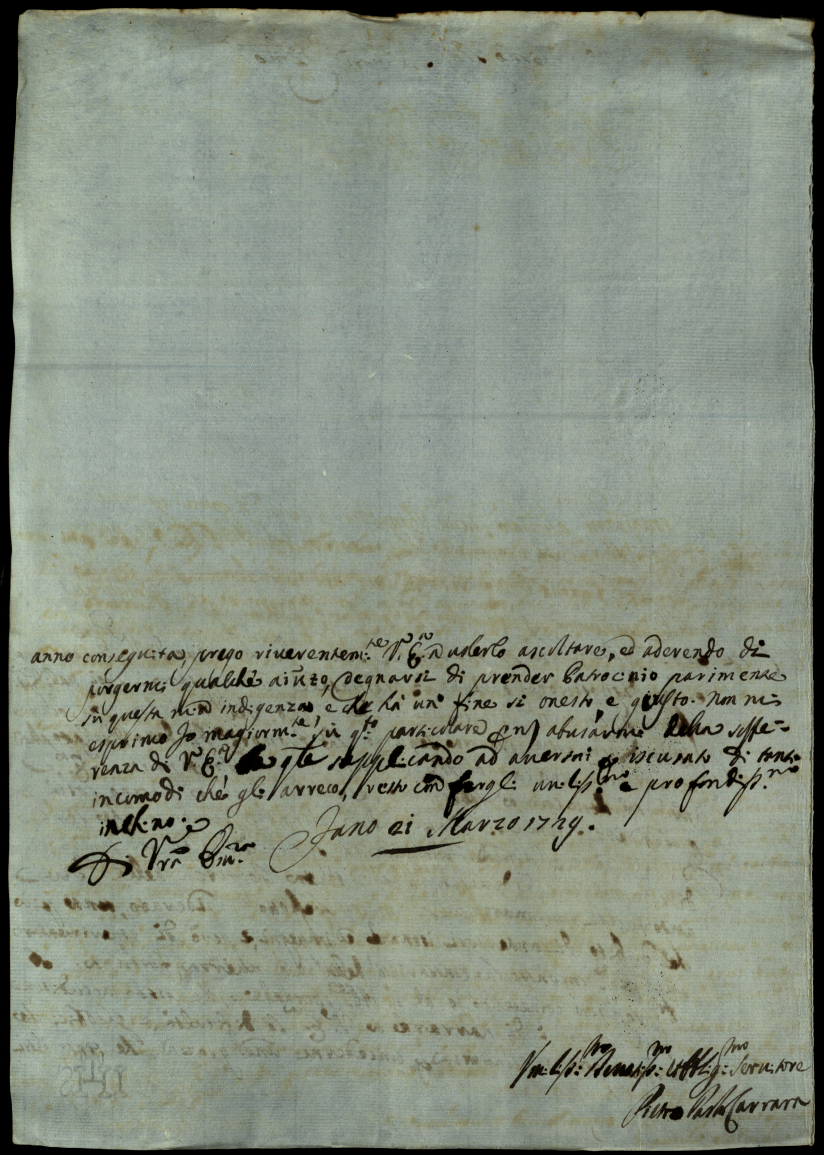 anno conseguita, prego riverentem:te V.ra E.a a uolerlo ascoltare, ed aderendo di
porgermi qualche aiuto, degnarsi di prender Patrocinio parimente
in questa mia indigenza e che hà un' fine si onesto, e giusto. Non mi
esprimo Jo magiorm:te in q.to particolare p non abusarmi della soffe=
renza di V.ra E.a la q.le supplicando ad auermi p iscusato di tanti
incomodi che gli arreco, resto con fargli umiliss:mo e profondiss:mo
inchino.
Di Vra Em.za Jano 21 Marzo 1729.
Vmiliss:mo Deuotiss:mo Obblig:mo Seruitore
Pietro Carrara